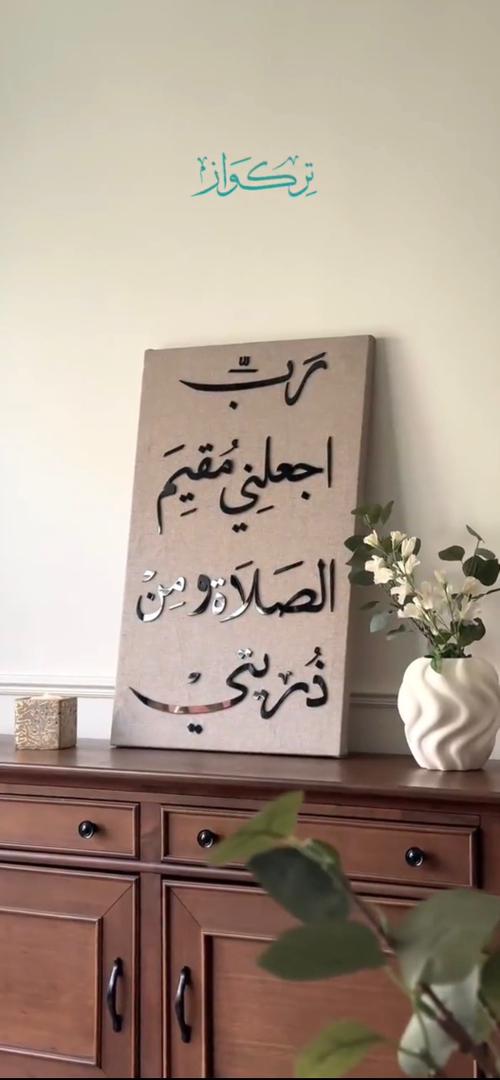 تِركَواز
رَبّ
اجعلنِي مُقيِمَ
الصَلَاة ومِنْ
ذُريتي